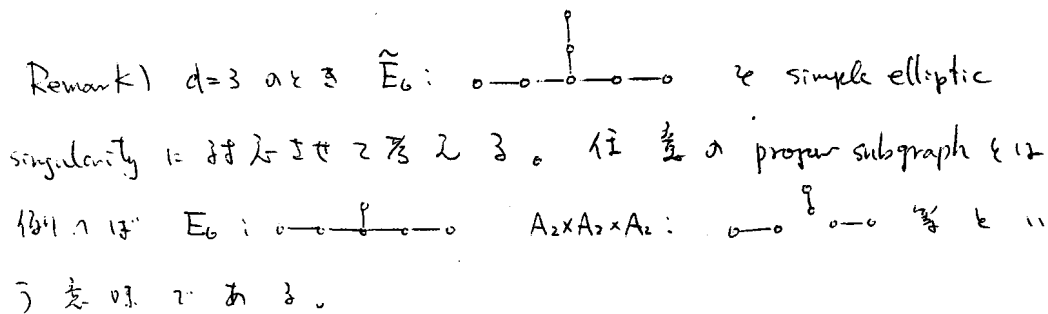 Remark) d=3 のとき Ẽ₆: を simple elliptic
singularity に対応させて考える。任意の proper subgraph とは
例えば E₆: A₂×A₂×A₂: 等とい
う意味である。